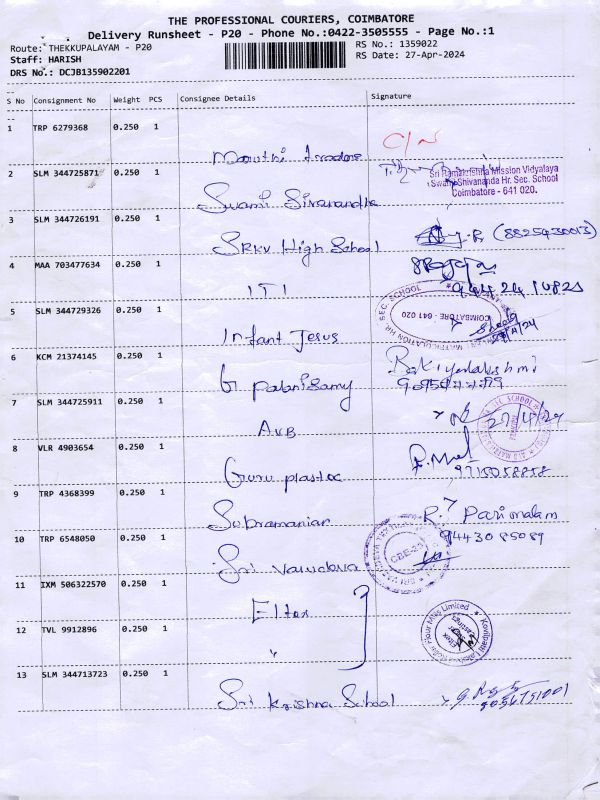 THE PROFESSIONAL COURIERS, COIMBATORE
Delivery Runsheet - P20 - Phone No.:0422-3505555 - Page No.:1
Route: THEKKUPALAYAM - P20
RS No.: 1359022
Staff: HARISH
RS Date: 27-Apr-2024
DRS No.: DCJB135902201
S No Consignment No Weight PCS Consignee Details Signature
1 TRP 6279368 0.250 1
C/N
Maruthi traders
2 SLM 344725871 0.250 1
Sri Ramakrishna Mission Vidyalaya
Swami Shivananda Hr. Sec. School
Coimbatore - 641 020.
Swami Sivanandha
3 SLM 344726191 0.250 1
SRKV High School
4 MAA 703477634 0.250 1
ITI
5 SLM 344729326 0.250 1
COIMBATORE - 641 020
Infant Jesus
6 KCM 21374145 0.250 1
G palanisamy
7 SLM 344725911 0.250 1
27/4/24
AVB
8 VLR 4903654 0.250 1
9715058858
Guru plastic
9 TRP 4368399 0.250 1
R. Parimalam
Subramanian
9443085089
10 TRP 6548050 0.250 1
Sri Vasudeva
11 IXM 506322570 0.250 1
Eltex
12 TVL 9912896 0.250 1
"
13 SLM 344713723 0.250 1
Sri Krishna School